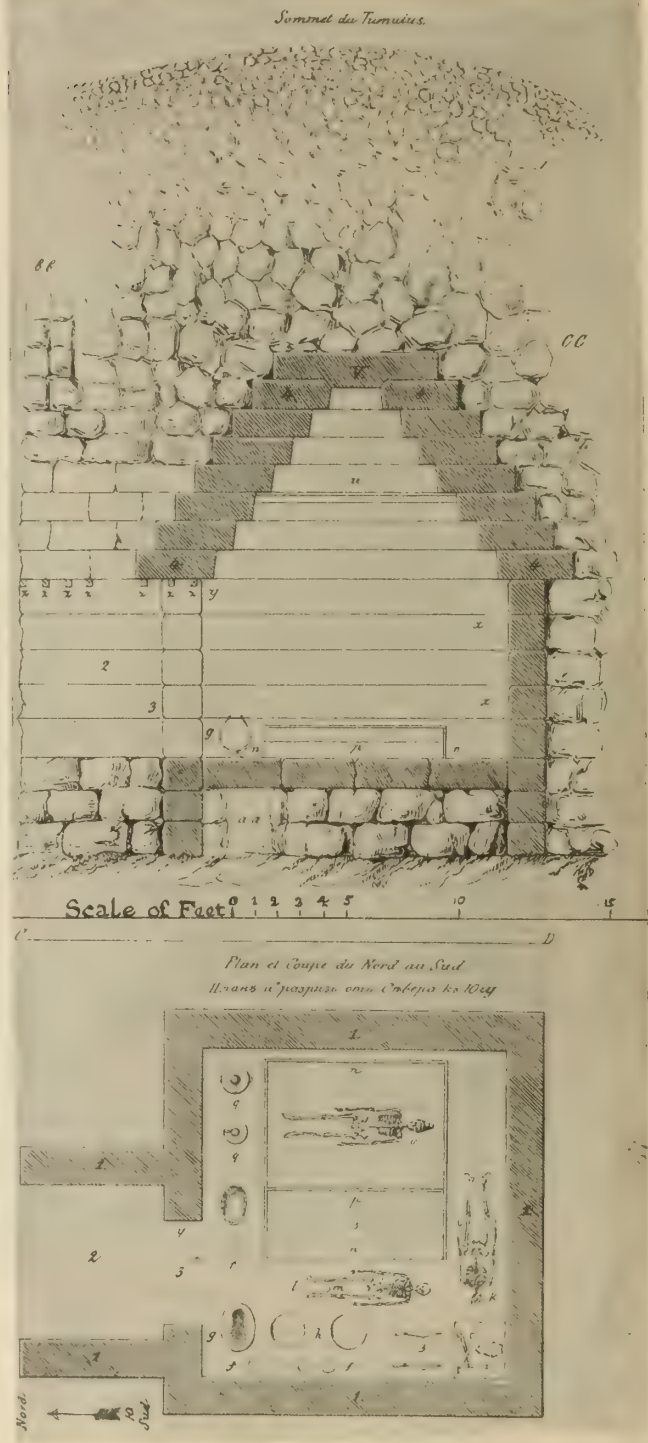 Sommet du Tumulus.
BB
CC
V
4 4
u
4 4
z z z z z z z y
x
2
3
x
g n p n
aa
Scale of Feet 0 1 2 3 4 5 10 15
C D
Plan et Coupe du Nord au Sud
Планъ и разрѣзъ отъ Сѣвера къ Югу
1
n
q
q
1
p
y s
2 r n
3
l
k
g h
1 f f
1
Nord.
Sud.
Ю